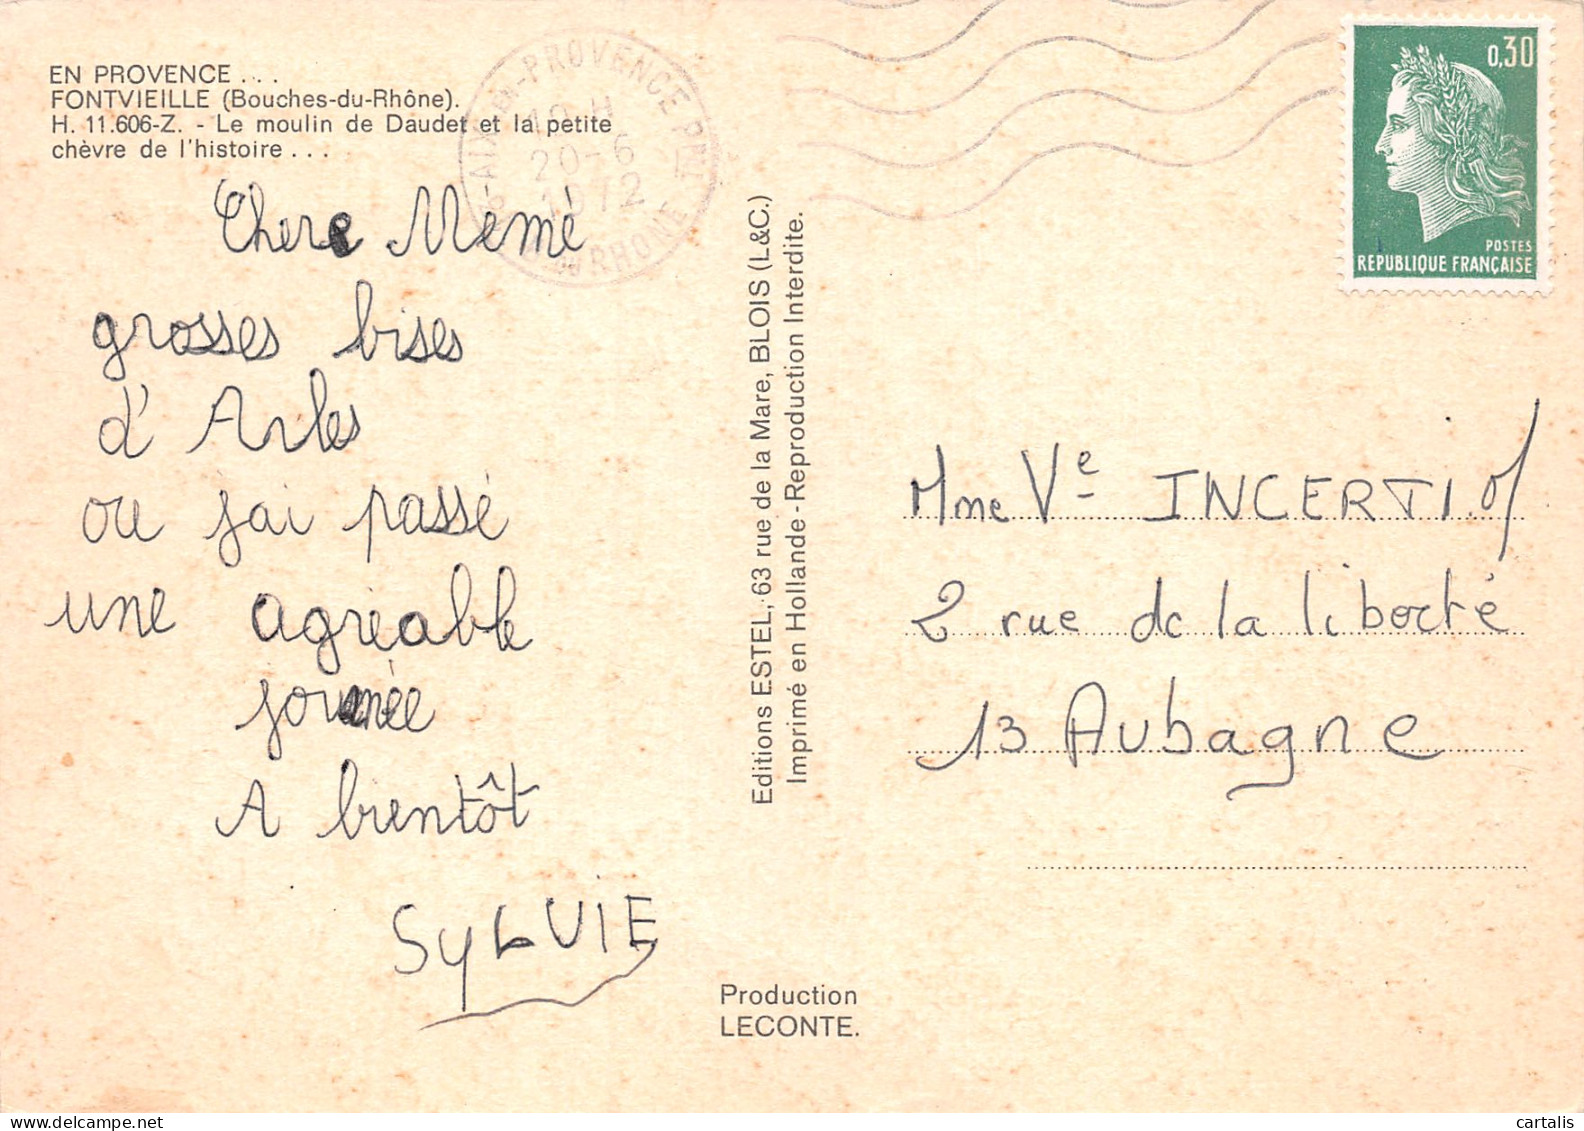 EN PROVENCE...
FONTVIEILLE (Bouches-du-Rhône).
H. 11.606-Z. - Le moulin de Daudet et la petite
chèvre de l'histoire...
Chere Mémé
grosses bises
d'Arles
ou j'ai passé
une agréable
journée
A bientôt
SYLVIE
Editions ESTEL, 63 rue de la Mare, BLOIS (L&C.)
Imprimé en Hollande-Reproduction Interdite.
Production
LECONTE.
AIX-en-PROVENCE
20-6
1972
du RHONE
0,30
POSTES
REPUBLIQUE FRANÇAISE
Mme Ve INCERTI
2 rue de la liberté
13 Aubagne
cartalis